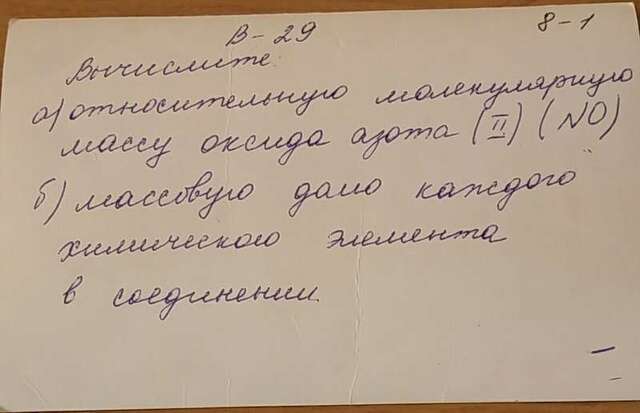 В-29
8-1
Вычислите:
а) относительную молекулярную
массу оксида азота (II) (NO)
б) массовую долю каждого
химического элемента
в соединении.